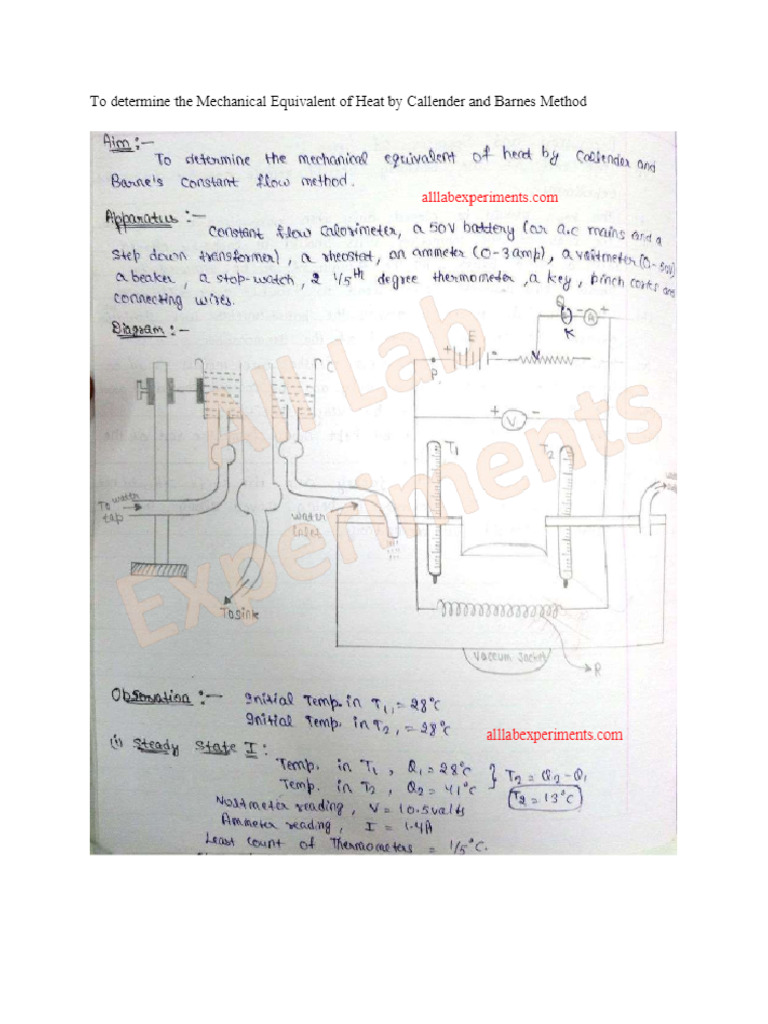 To determine the Mechanical Equivalent of Heat by Callender and Barnes Method
Aim :-
To determine the mechanical equivalent of heat by Callender and
Barne's constant flow method.
alllabexperiments.com
Apparatus :-
Constant flow Calorimeter, a 50V battery (or a.c mains and a
step down transformer), a rheostat, an ammeter (0-3 amp), a voltmeter (0-50V)
a beaker, a stop-watch, 2 1/5th degree thermometer, a key, pinch corks and
connecting wires.
Diagram :-
All Lab
Experiments
C
E
P
K
A
V
T1
T2
To water
tap
Water
Inlet
To sink
Vaccum Jacket
R
Observation :- Initial Temp. in T1, = 28°C
Initial Temp. in T2, = 28°C
alllabexperiments.com
(i) Steady State I :
Temp. in T1, Q1 = 28°C } T2 = Q2 - Q1
Temp. in T2, Q2 = 41°C T2 = 13°C
Voltmeter reading, V = 10.5 volts
Ammeter reading, I = 1.4A
Least count of Thermometers = 1/5°C.